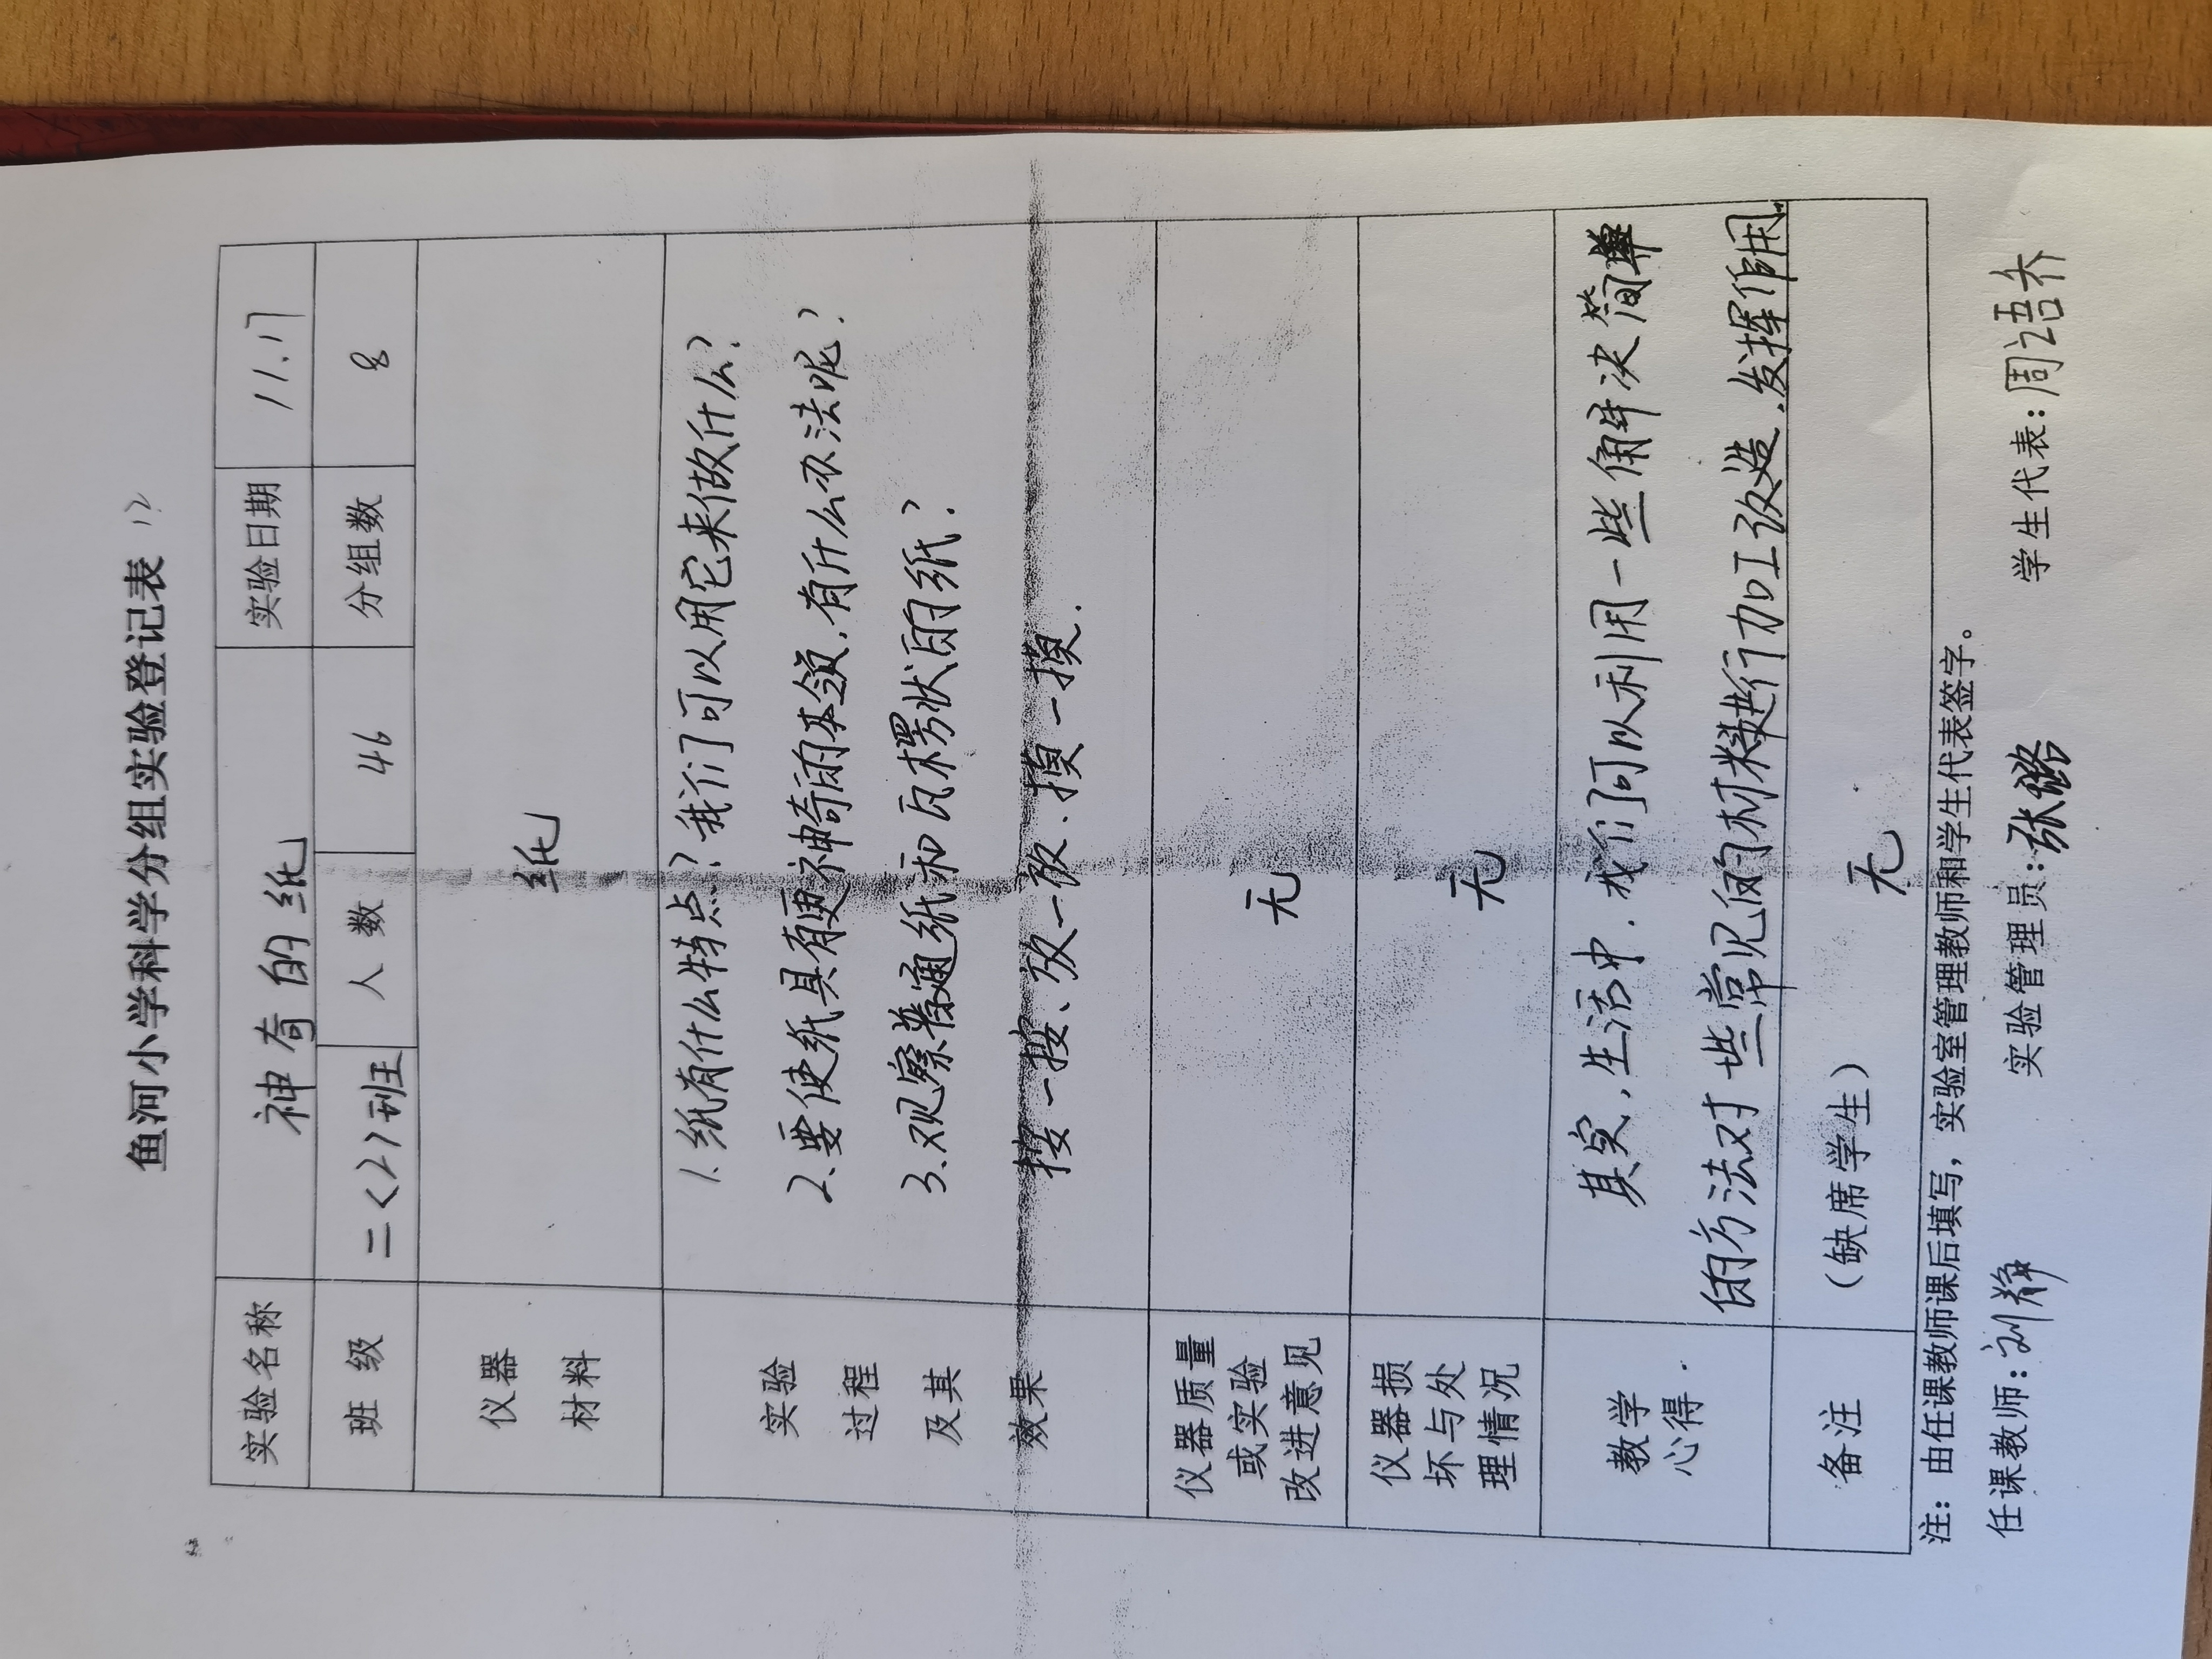 鱼河小学科学分组实验登记表 12
实验名称 神奇的纸 实验日期 11.17
班级 二<2>班 人数 46 分组数 8
仪器
材料
纸
实验
过程
及其
效果
1.纸有什么特点?我们可以用它来做什么?
2.要使纸具有更神奇的本领,有什么办法呢?
3.观察普通纸和瓦楞状的纸?
按一按、放一放、摸一摸.
仪器质量
或实验
改进意见
无
仪器损
坏与处
理情况
无
教学
心得
其实,生活中,我们可以利用一些解决简单
的方法对一些常见的材料进行加工改造,发挥作用.
备注 (缺席学生) 无
注:由任课教师课后填写,实验室管理教师和学生代表签字。
任课教师:刘静 实验管理员:张 学生代表:周语乔